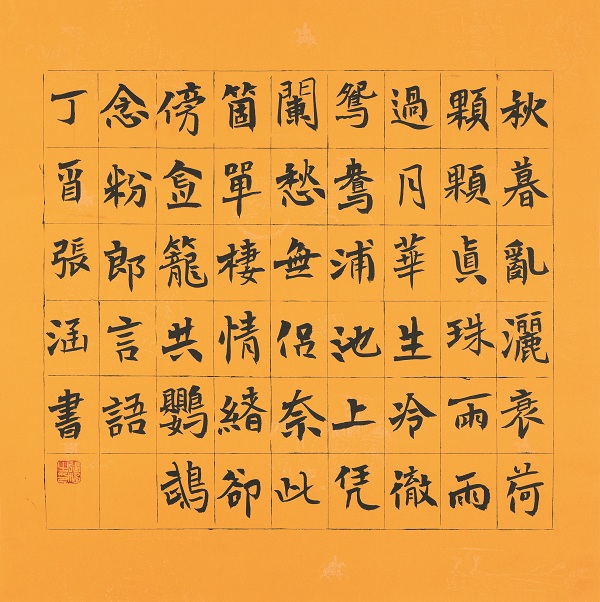 秋暮亂灑衰荷
顆顆眞珠雨雨
過月華生冷徹
鴛鴦浦池上凭
闌愁無侶奈此
箇單棲情緒卻
傍金籠共鸚鵡
念粉郎言語
丁酉張涵書